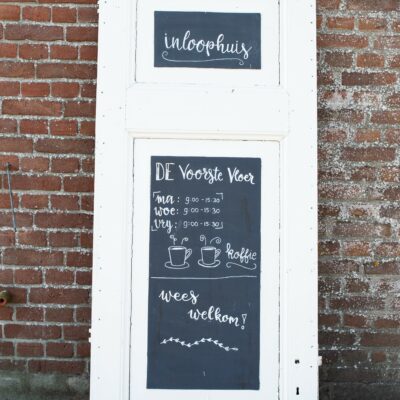 inloophuis
DE Voorste Vloer
ma: 9:00 - 15:30
woe: 9:00 - 15:30
vrij: 9:00 - 15:30
koffie
wees
welkom!